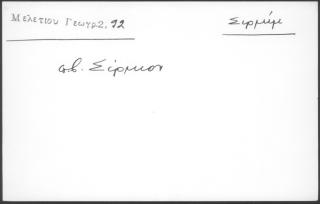 Μελετίου Γεωγρ2, 92
Σιρμίμ
πβ. Σίρμιον